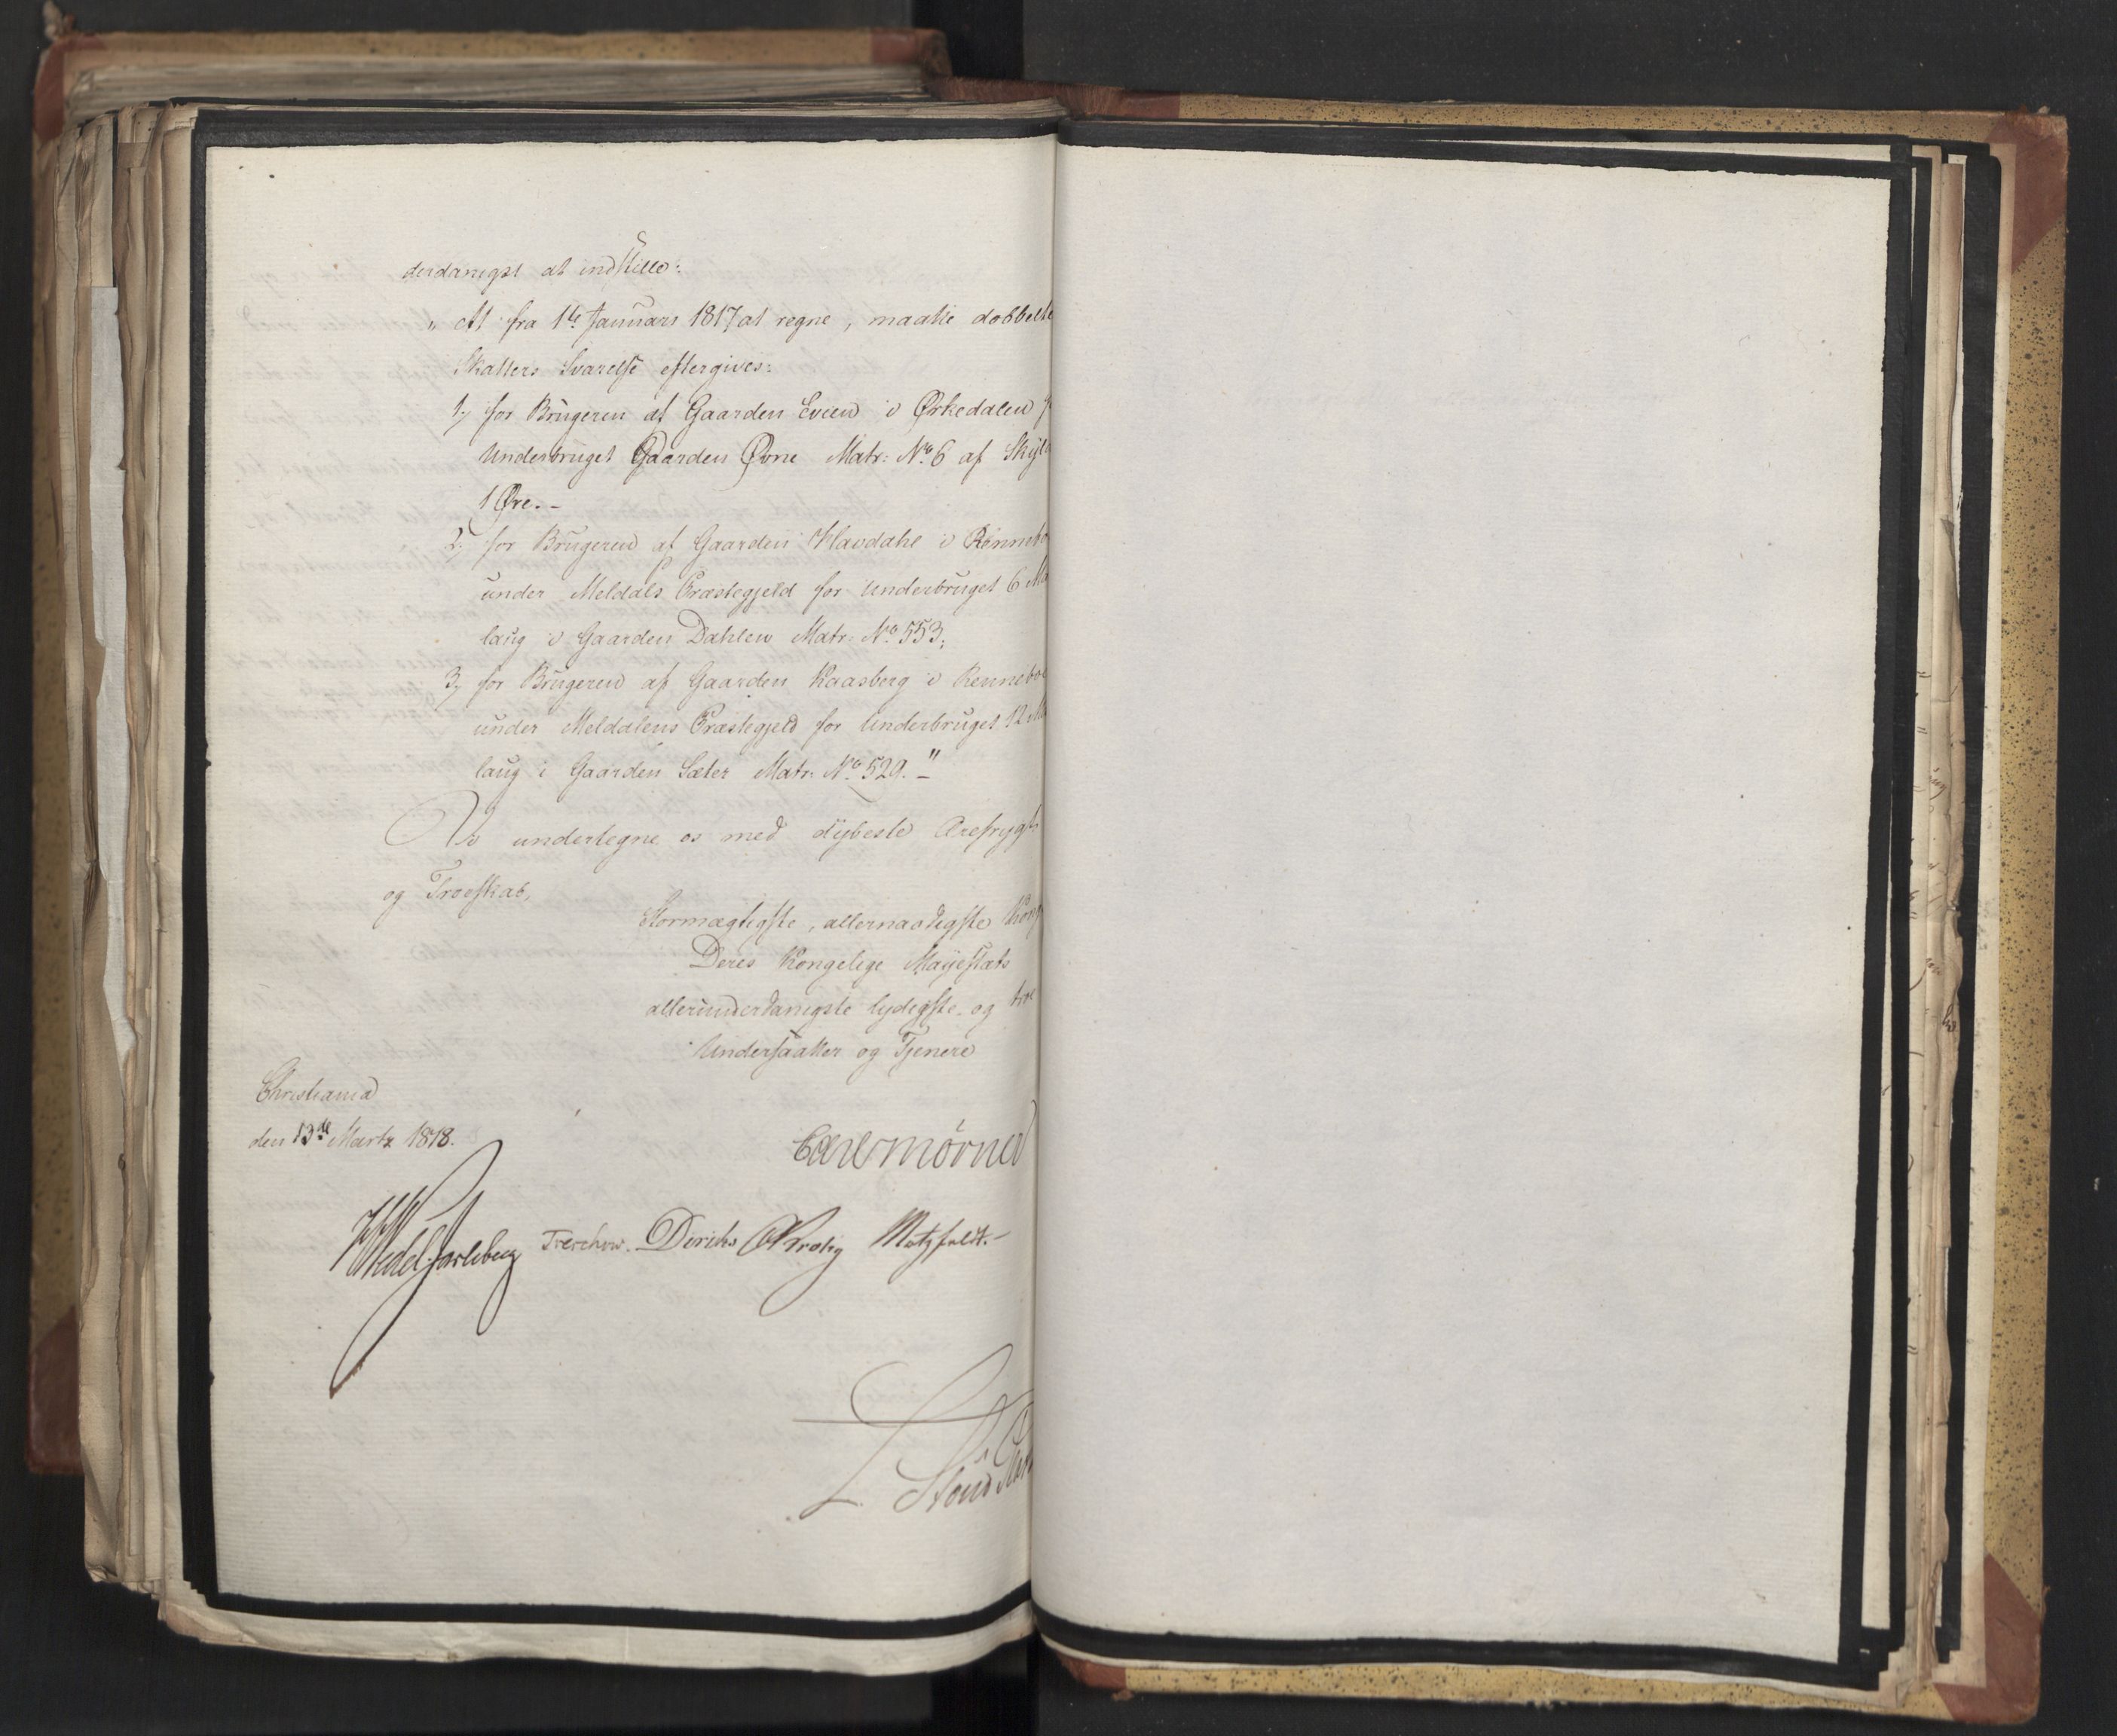 derdanigst at indstille:
„ At fra 1te Januari 1817 at regne, maatte dobbelte
Skatters Svarelse eftergives:
1, for Brugeren af Gaarden Evien i Ørkedalen
Underbruget Gaarden Øvne Matr: No 6 af Skyld
1 Øre.–
2, for Brugeren af Gaarden Havdahl i
under Meldals Præstegjeld for Underbruget 6
laug i Gaarden Dahlen Matr: No 553;
3, for Brugeren af Gaarden Kaasberg i
under Meldalens Præstegjeld for Underbruget 12
laug i Gaarden Sæter Matr: No 529." –
Vi undertegne os med dybeste Ærefrygt
og Troeskab,
Stormægtigste, allernaadigste
Deres Kongelige Mayestæts
allerunderdanigste lydigste og troe
Undersaatter og Tjenere
Christiania
den 13de Martz 1818.
Carl Mörner
HWedel Jarlsberg Treschow. Diriks CKrohg Motzfeldt.–